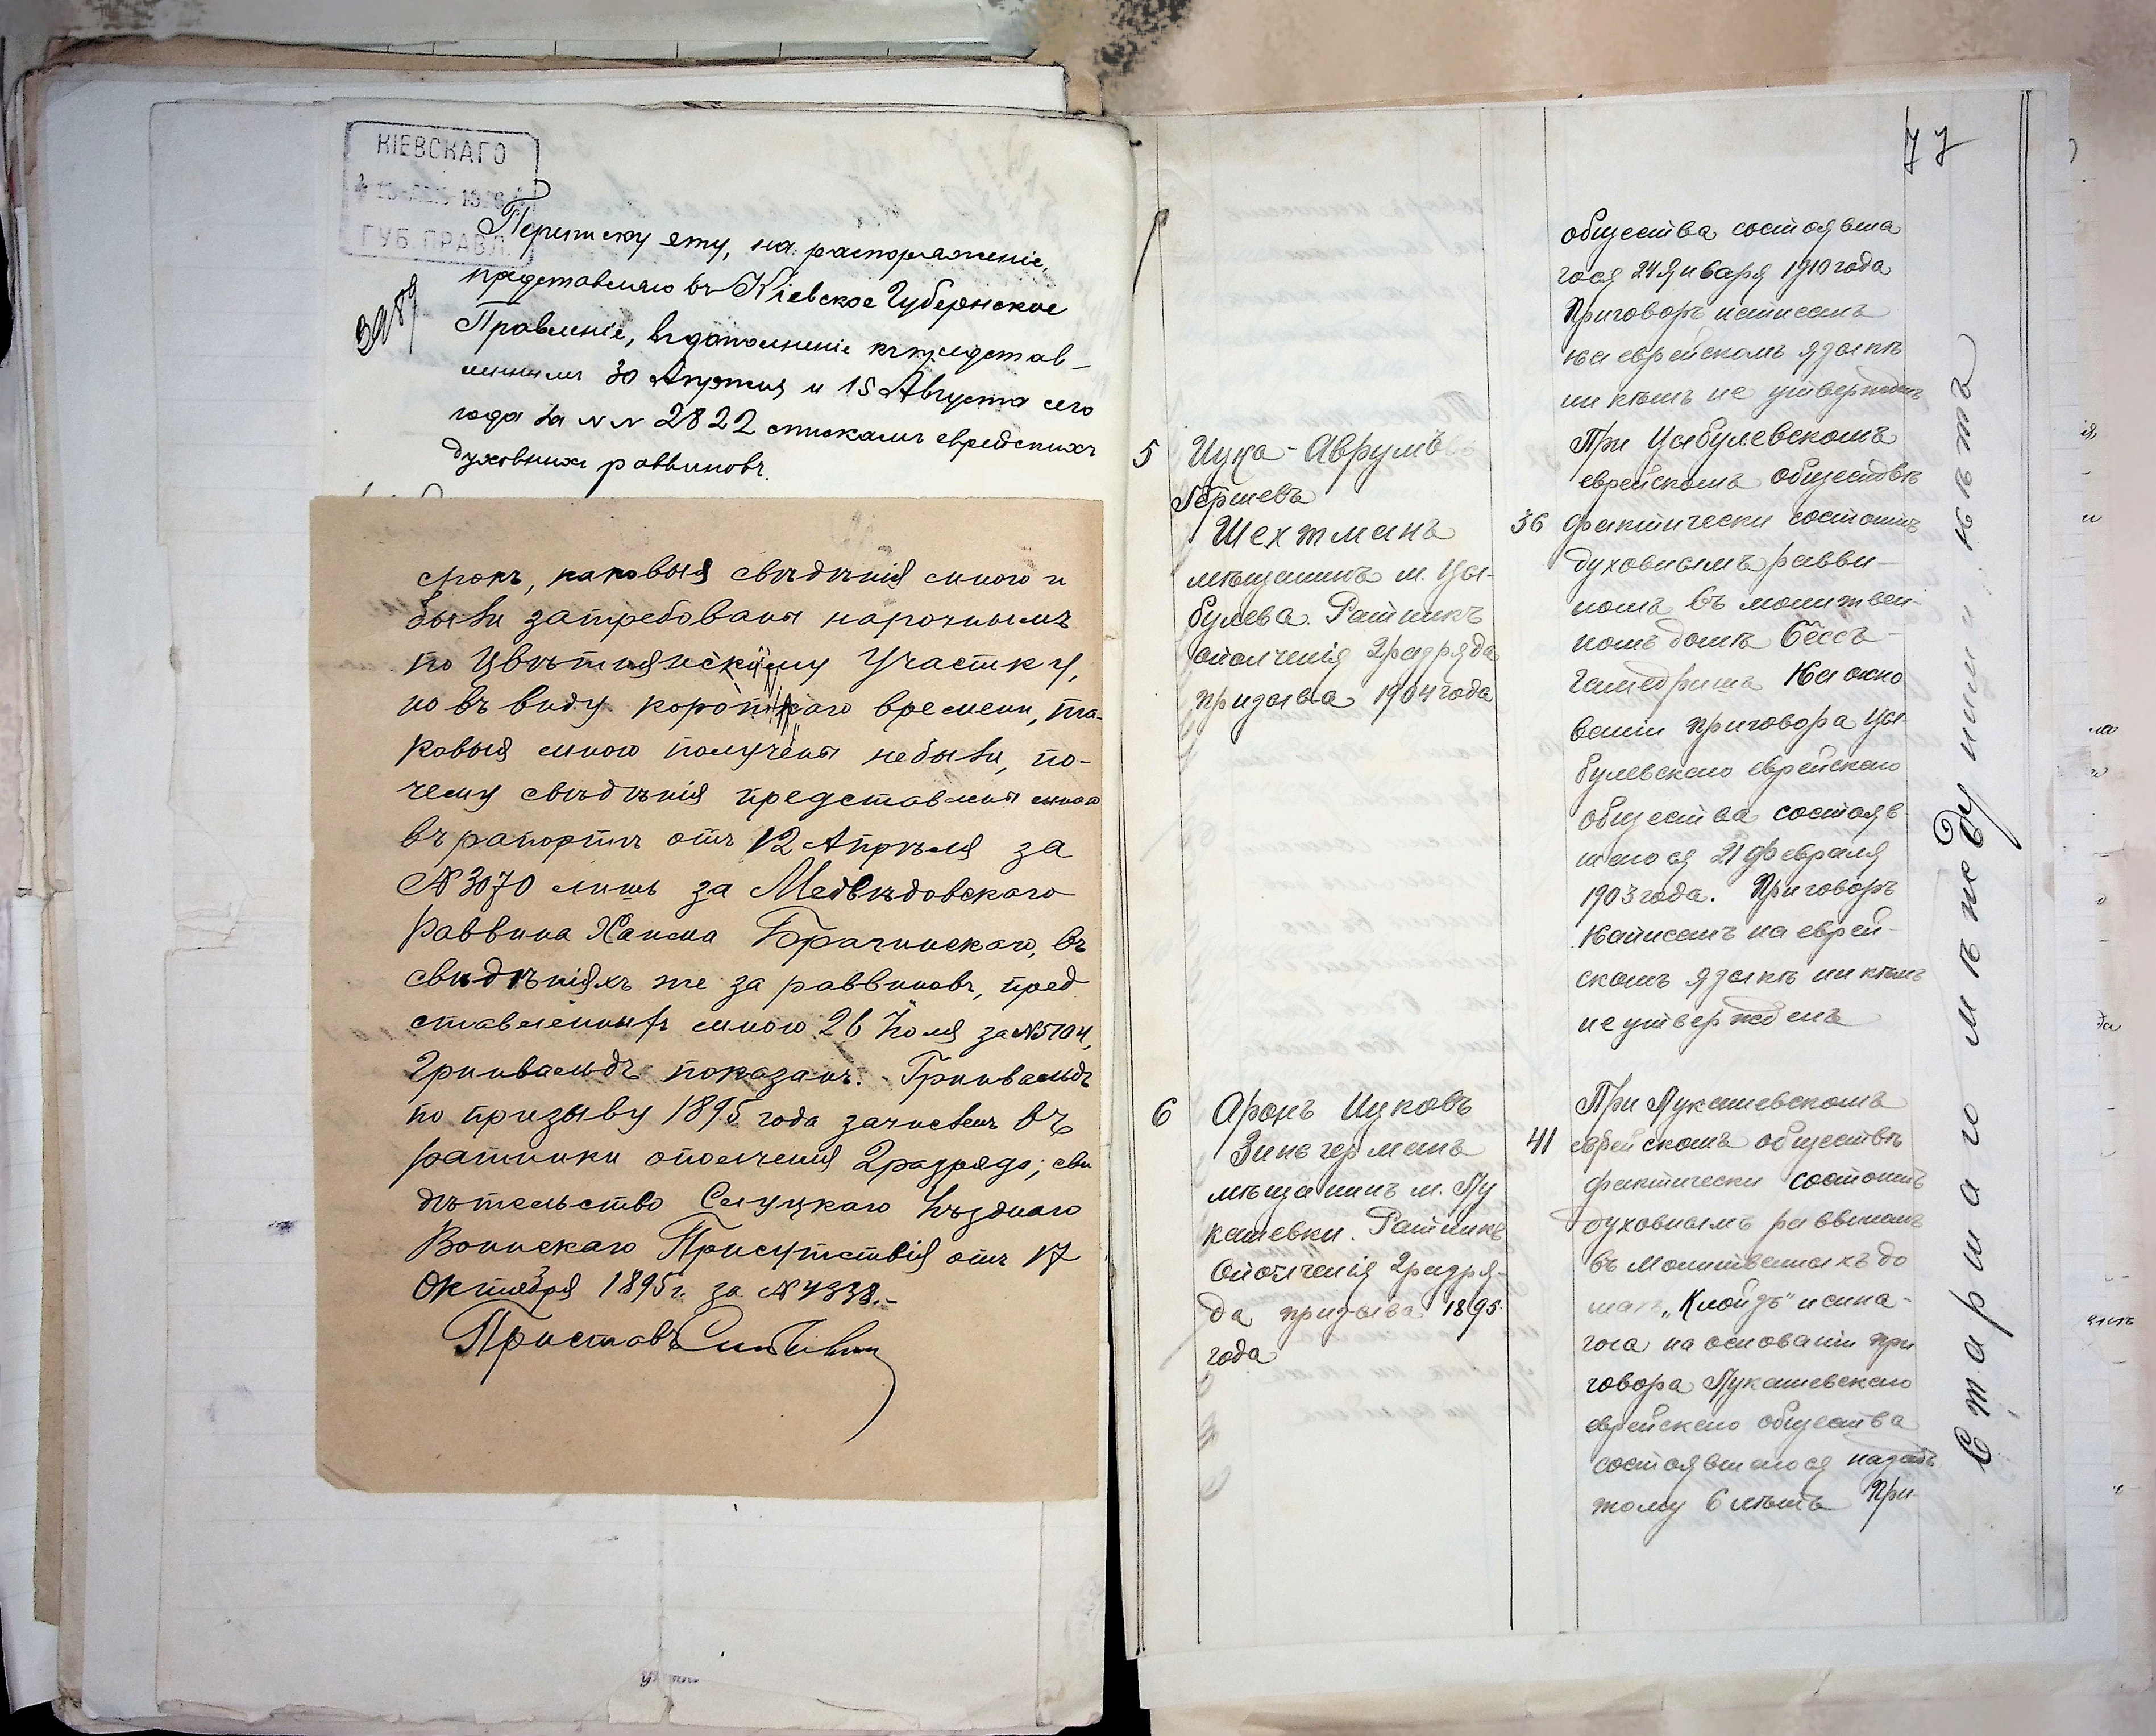 КІЕВСКАГО
ГУБ. ПРАВЛ.
Переписку эту, на распоряженіе,
представляю въ Кіевское Губернское
Правленіе, въ дополненіе къ представ-
леннымъ 30 Апрѣля и 15 Августа сего
года за №№ 2822 спискамъ еврейскихъ
духовныхъ раввиновъ.
срокъ, каковыя свѣдѣнія мною и
были затребованы нарочнымъ
по Цвѣтнянскому участку,
но въ виду короткаго времени, та-
ковыя мною получены небыли, по-
чему свѣдѣнія представлены мною
въ рапортѣ отъ 12 Апрѣля за
№ 3070 лишь за Медвѣдовскаго
Раввина Хаима Брачинскаго, въ
свѣдѣніяхъ же за раввиновъ, пред
ставленныхъ мною 26 Іюля за №5104,
Гринвальдъ показанъ. Гринвальдъ
по призыву 1895 года зачисленъ въ
ратники ополченія 2 разряда; сви
дѣтельство Слуцкаго Уѣзднаго
Воинскаго Присутствія отъ 17
Октября 1895 г. за № 4338.-
Приставъ
77
общества состоявша
гося 24 Января 1910 года
Приговоръ написанъ
на еврейскомъ языкѣ
ни кѣмъ не утвержденъ
5 Ицка-Аврумъ
Гершевъ
Шехтманъ
мѣщанинъ м. Цы-
булева. Ратникъ
ополченія 2 разряда
призыва 1904 года
36
При Цыбулевскомъ
еврейскомъ обществѣ
фактически состоитъ
духовнымъ равви-
номъ въ молитвен-
номъ домѣ Бесъ-
Гамедришъ На осно
ваніи приговора Цы-
булевскаго еврейскаго
общества состояв
шагося 21 Февраля
1903 года. Приговоръ
Написанъ на еврей-
скомъ языкѣ ни кѣмъ
не утвержденъ
6 Аронъ Ицковъ
Зингерманъ
мѣщанинъ м. Лу
кашевки. Ратникъ
Ополченія 2 разря-
да призыва 1895
года
41
При Лукашевскомъ
еврейскомъ обществѣ
фактически состоитъ
духовнымъ раввиномъ
въ молитвенныхъ до
махъ „Клойзъ" и сина-
гога на основаніи при
говора Лукашевскаго
еврейскаго общества
состоявшагося назадъ
тому 6 лѣтъ При-
Старшаго между ними нѣтъ